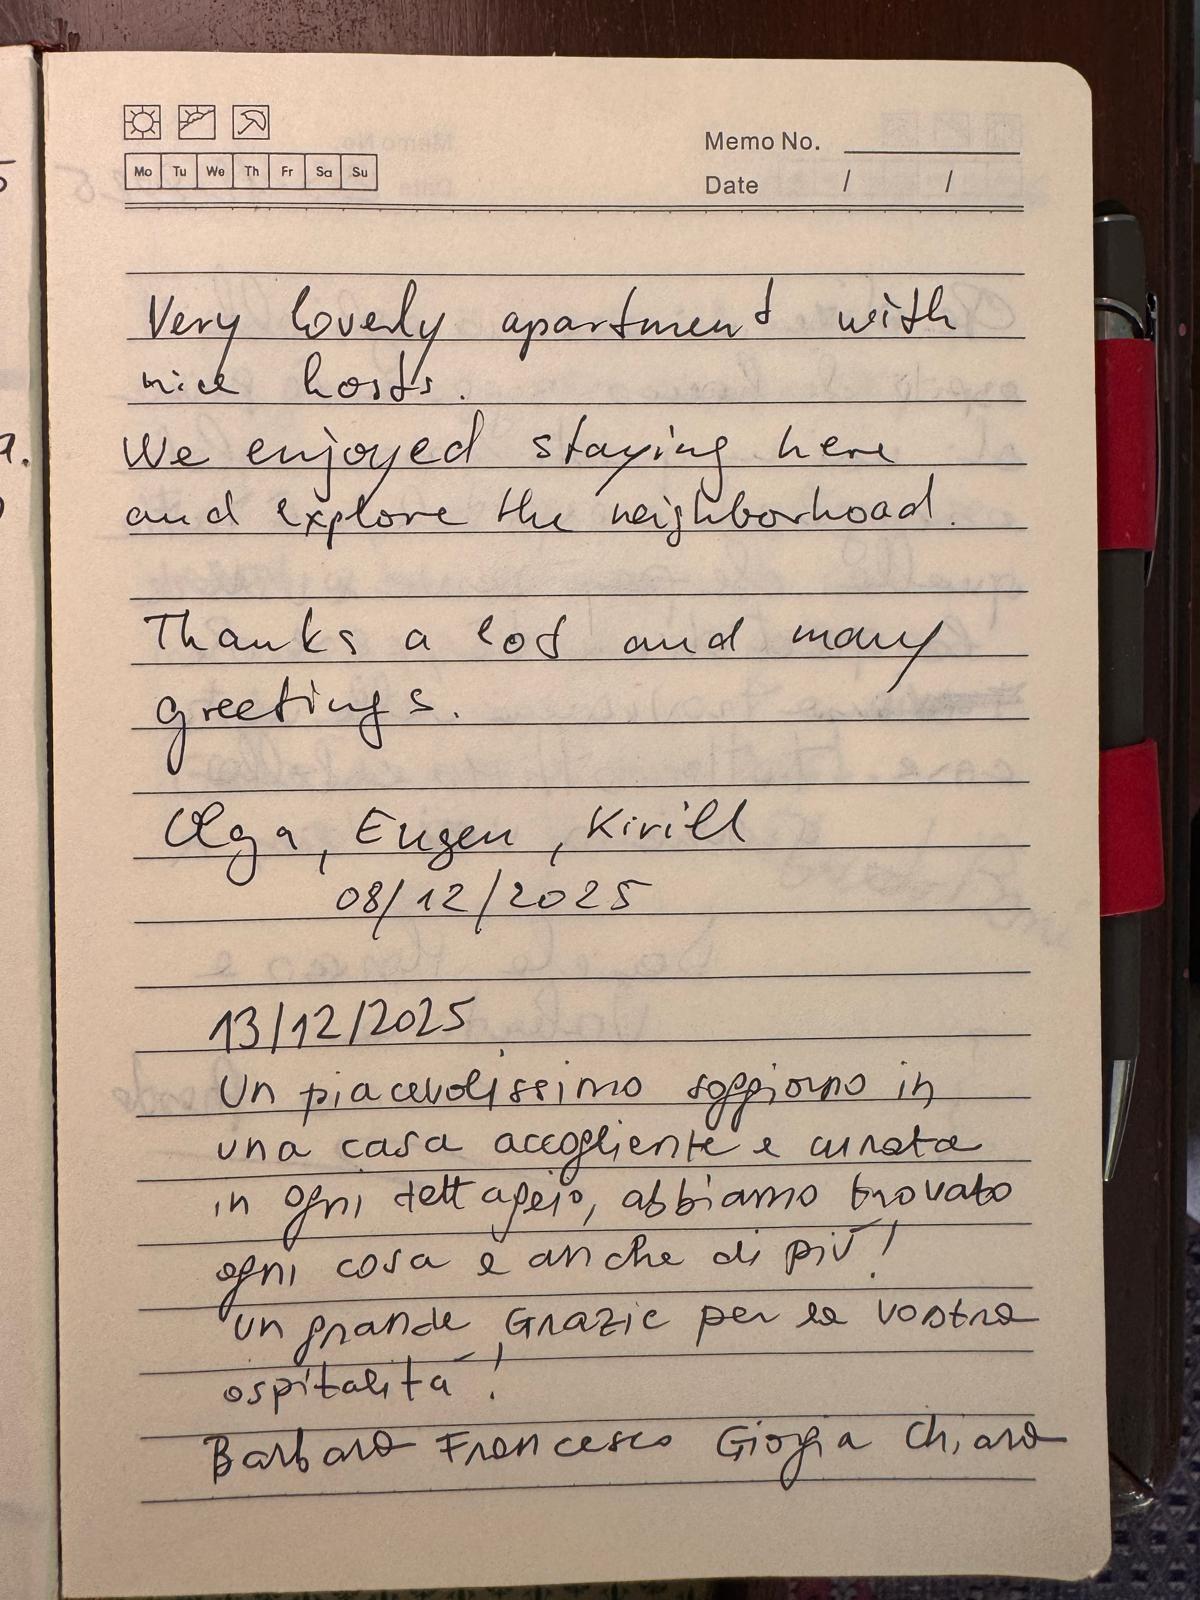 Memo No.
Mo Tu We Th Fr Sa Su
Date / /
Very loverly apartment with
nice hosts.
We enjoyed staying here
and explore the neighborhoad.
Thanks a lot and many
greetings.
Olga, Eugen, Kirill
08/12/2025
13/12/2025
Un piacevolissimo soggiorno in
una casa accogliente e curata
in ogni dettaglio, abbiamo trovato
ogni cosa e anche di più!
Un grande Grazie per la vostra
ospitalità!
Barbara Francesco Giorgia Chiara